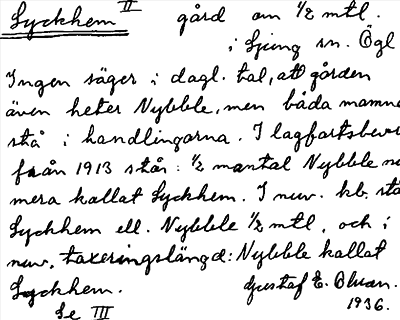 Lyckhem II gård om 1/2 mtl.
i Ljung sn. Ögl
Ingen säger i dagl. tal, att gården
även heter Nybble, men båda namne
stå i handlingarna. I lagfartsbevi
från 1913 står: 1/2 mantal Nybble nu
mera kallat Lyckhem. I nuv. kb. stå
Lyckhem ell. Nybble 1/2 mtl, och i
nuv. taxeringslängd: Nybble kallat
Lyckhem. Gustaf E. Oluan.
Se III 1936.